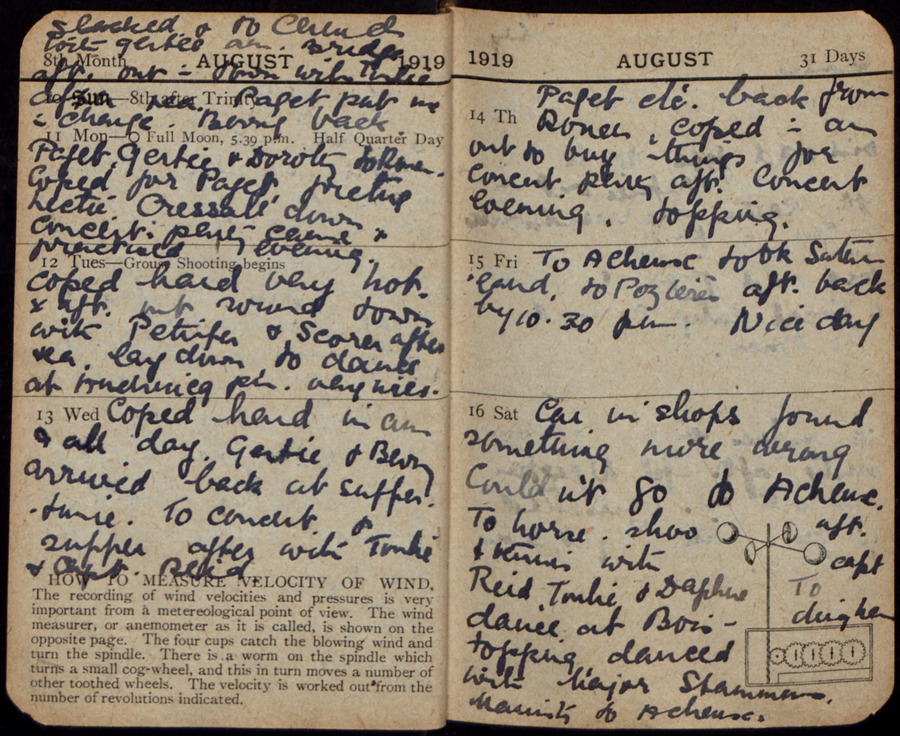 slacked & to Church
with Gertie am.
8th Month AUGUST 1919
aft. out in town with Tonkie
10 Sun—8th after Trinity
Paget put me
in charge. Berry back.
11 Mon—O Full Moon, 5.30 p.m. Half Quarter Day
Paget, Gertie & Dorothy to Rouen.
Coped for Paget
hectic Cressall down
concert party came &
evening.
12 Tues—Grouse Shooting begins
coped hard very hot.
& aft. out round town
with & Scorer after
tea. lay down to dance
at pm. very
13 Wed Coped hard in am
& all day. Gertie & Berry
arrived back at supper
time. To concert &
supper after with Tonkie
& Capt. Reid.
HOW TO MEASURE VELOCITY OF WIND.
The recording of wind velocities and pressures is very
important from a metereological point of view. The wind
measurer, or anemometer as it is called, is shown on the
opposite page. The four cups catch the blowing wind and
turn the spindle. There is a worm on the spindle which
turns a small cog-wheel, and this in turn moves a number of
other toothed wheels. The velocity is worked out from the
number of revolutions indicated.
1919 AUGUST 31 Days
Paget etc. back from
14 Th Rouen, coped in am
out to buy things for
concert party aft. Concert
evening. topping.
15 Fri To Acheux took
to Pozieres aft. back
by 10.30 pm. Nice day
16 Sat Car in shops found
something more wrong
Couldn't go to Acheux.
To horse show aft.
& tennis with capt
Reid, Tonkie & Daphne To
dance at Bois-
topping danced
with Major
to Acheux.